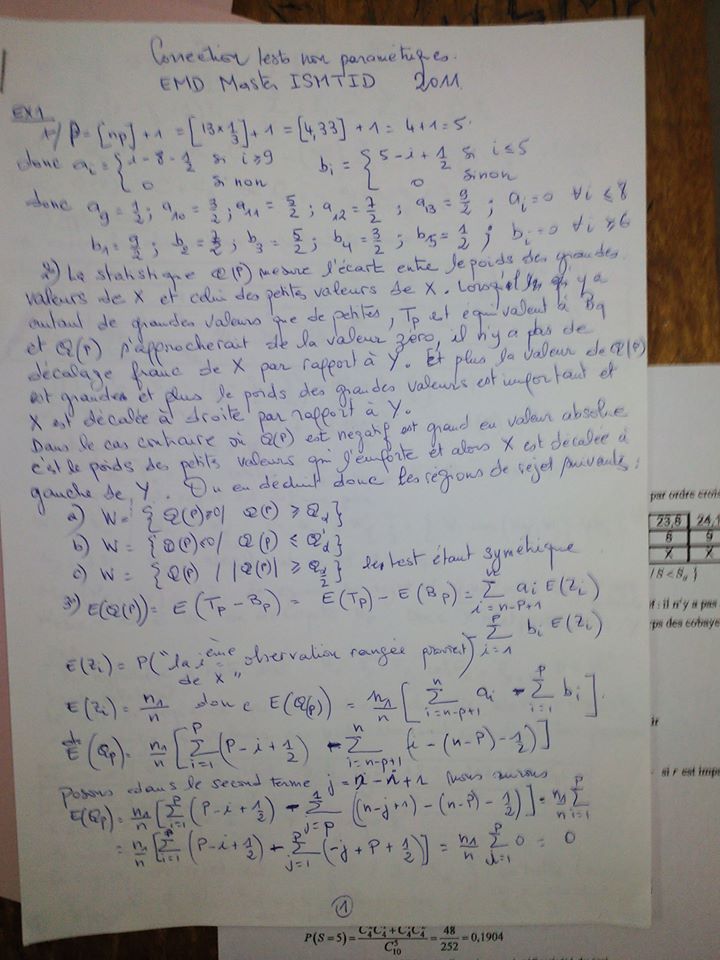 Correction tests non paramétriques.
EMD Master ISMTID 2011
EX1
1°/ P = [np] + 1 = [13 × 1/3] + 1 = [4,33] + 1 = 4 + 1 = 5.
donc ai = { i - 8 - 1/2 si i ≥ 9
0 si non
bi = { 5 - i + 1/2 si i ≤ 5
0 sinon
donc a9 = 1/2 ; a10 = 3/2 ; a11 = 5/2 ; a12 = 7/2 ; a13 = 9/2 ; ai = 0 ∀i ≤ 8
b1 = 9/2 ; b2 = 7/2 ; b3 = 5/2 ; b4 = 3/2 ; b5 = 1/2 ; bi = 0 ∀i ≥ 6
2°) La statistique Q(P) mesure l'écart entre le poids des grandes
valeurs de X et celui des petites valeurs de X. Lorsqu'il y a
autant de grandes valeurs que de petites, Tp est équivalent à Bq
et Q(P) s'approcherait de la valeur zéro, il n'y a pas de
décalage franc de X par rapport à Y. Et plus la valeur de Q(P)
est grande et plus le poids des grandes valeurs est important et
X est décalée à droite par rapport à Y.
Dans le cas contraire où Q(P) est negatif est grand en valeur absolue
c'est le poids des petits valeurs qui l'emporte et alors X est décalée à
gauche de Y. On en déduit donc les régions de rejet suivants :
a) W = { Q(P)≥0 / Q(P) ≥ Qα }
b) W = { Q(P)<0 / Q(P) ≤ Q'α }
c) W = { Q(P) / |Q(P)| ≥ Qα/2 } les test étant symétique
3°) E(Q(P)) = E(Tp - Bp) = E(Tp) - E(Bp) = Σ i=n-P+1 n ai E(Zi)
Σ i=1 P bi E(Zi)
E(Zi) = P("la ième observation rangée provient
de X")
E(Zi) = n1/n donc E(Q(P)) = n1/n [ Σ i=n-p+1 n ai - Σ i=1 P bi ].
et E(Qp) = n1/n [ Σ i=1 P (P - i + 1/2) - Σ i=n-p+1 n (i - (n-P) - 1/2) ]
Posons dans le second terme j = n - i + 1 nous aurons
E(Qp) = n1/n [ Σ i=1 P (P - i + 1/2) - Σ j=P 1 ((n-j+1) - (n-P) - 1/2) ] = n1/n Σ i=1 P
= n1/n [ Σ i=1 P (P - i + 1/2) - Σ j=1 P (-j + P + 1/2) ] = n1/n Σ i=1 P 0 = 0
1
par ordre crois
23,8 24,1
8 9
X X
/ S < Sα }
: il n'y a pas
ps des cobaye
ir
si r est imp
P(S = 5) = = 48/252 = 0,1904